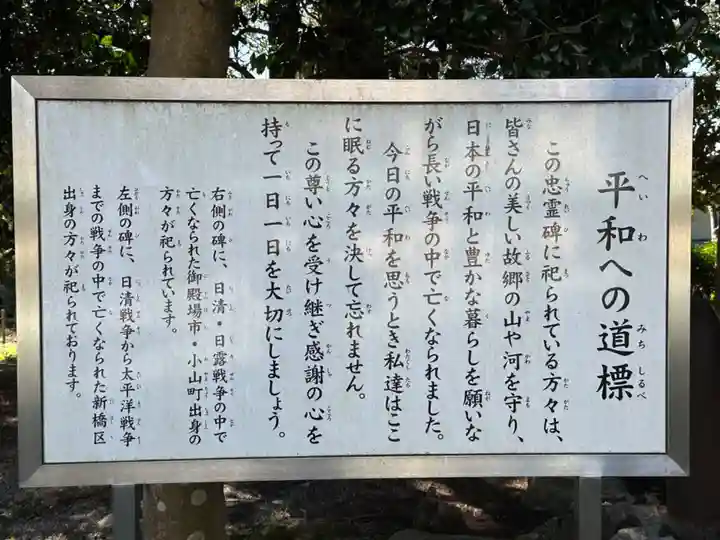 平和への道標
この忠霊碑に祀られている方々は、
皆さんの美しい故郷の山や河を守り、
日本の平和と豊かな暮らしを願いな
がら長い戦争の中で亡くなられました。
今日の平和を思うとき私達はここ
に眠る方々を決して忘れません。
この尊い心を受け継ぎ感謝の心を
持って一日一日を大切にしましょう。
右側の碑に、日清・日露戦争の中で
亡くなられた御殿場市・小山町出身の
方々が祀られています。
左側の碑に、日清戦争から太平洋戦争
までの戦争の中で亡くなられた新橋区
出身の方々が祀られております。